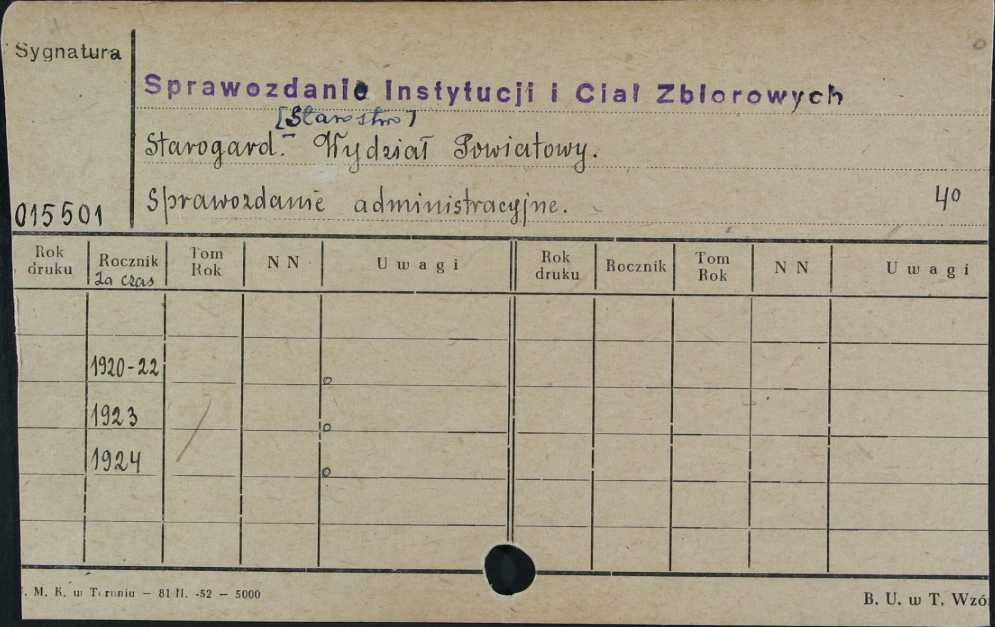 Sygnatura
Sprawozdanie Instytucji i Ciał Zbiorowych
[Starostwo]
Starogard.- Wydział Powiatowy.
Sprawozdanie administracyjne. 40
015501
Rok druku Rocznik Tom Rok NN Uwagi Rok druku Rocznik Tom Rok NN Uwagi
Za czas
1920-22
1923
1924
M. K. w Toruniu — 81 N. -52 — 5000
B. U. w T. Wzór